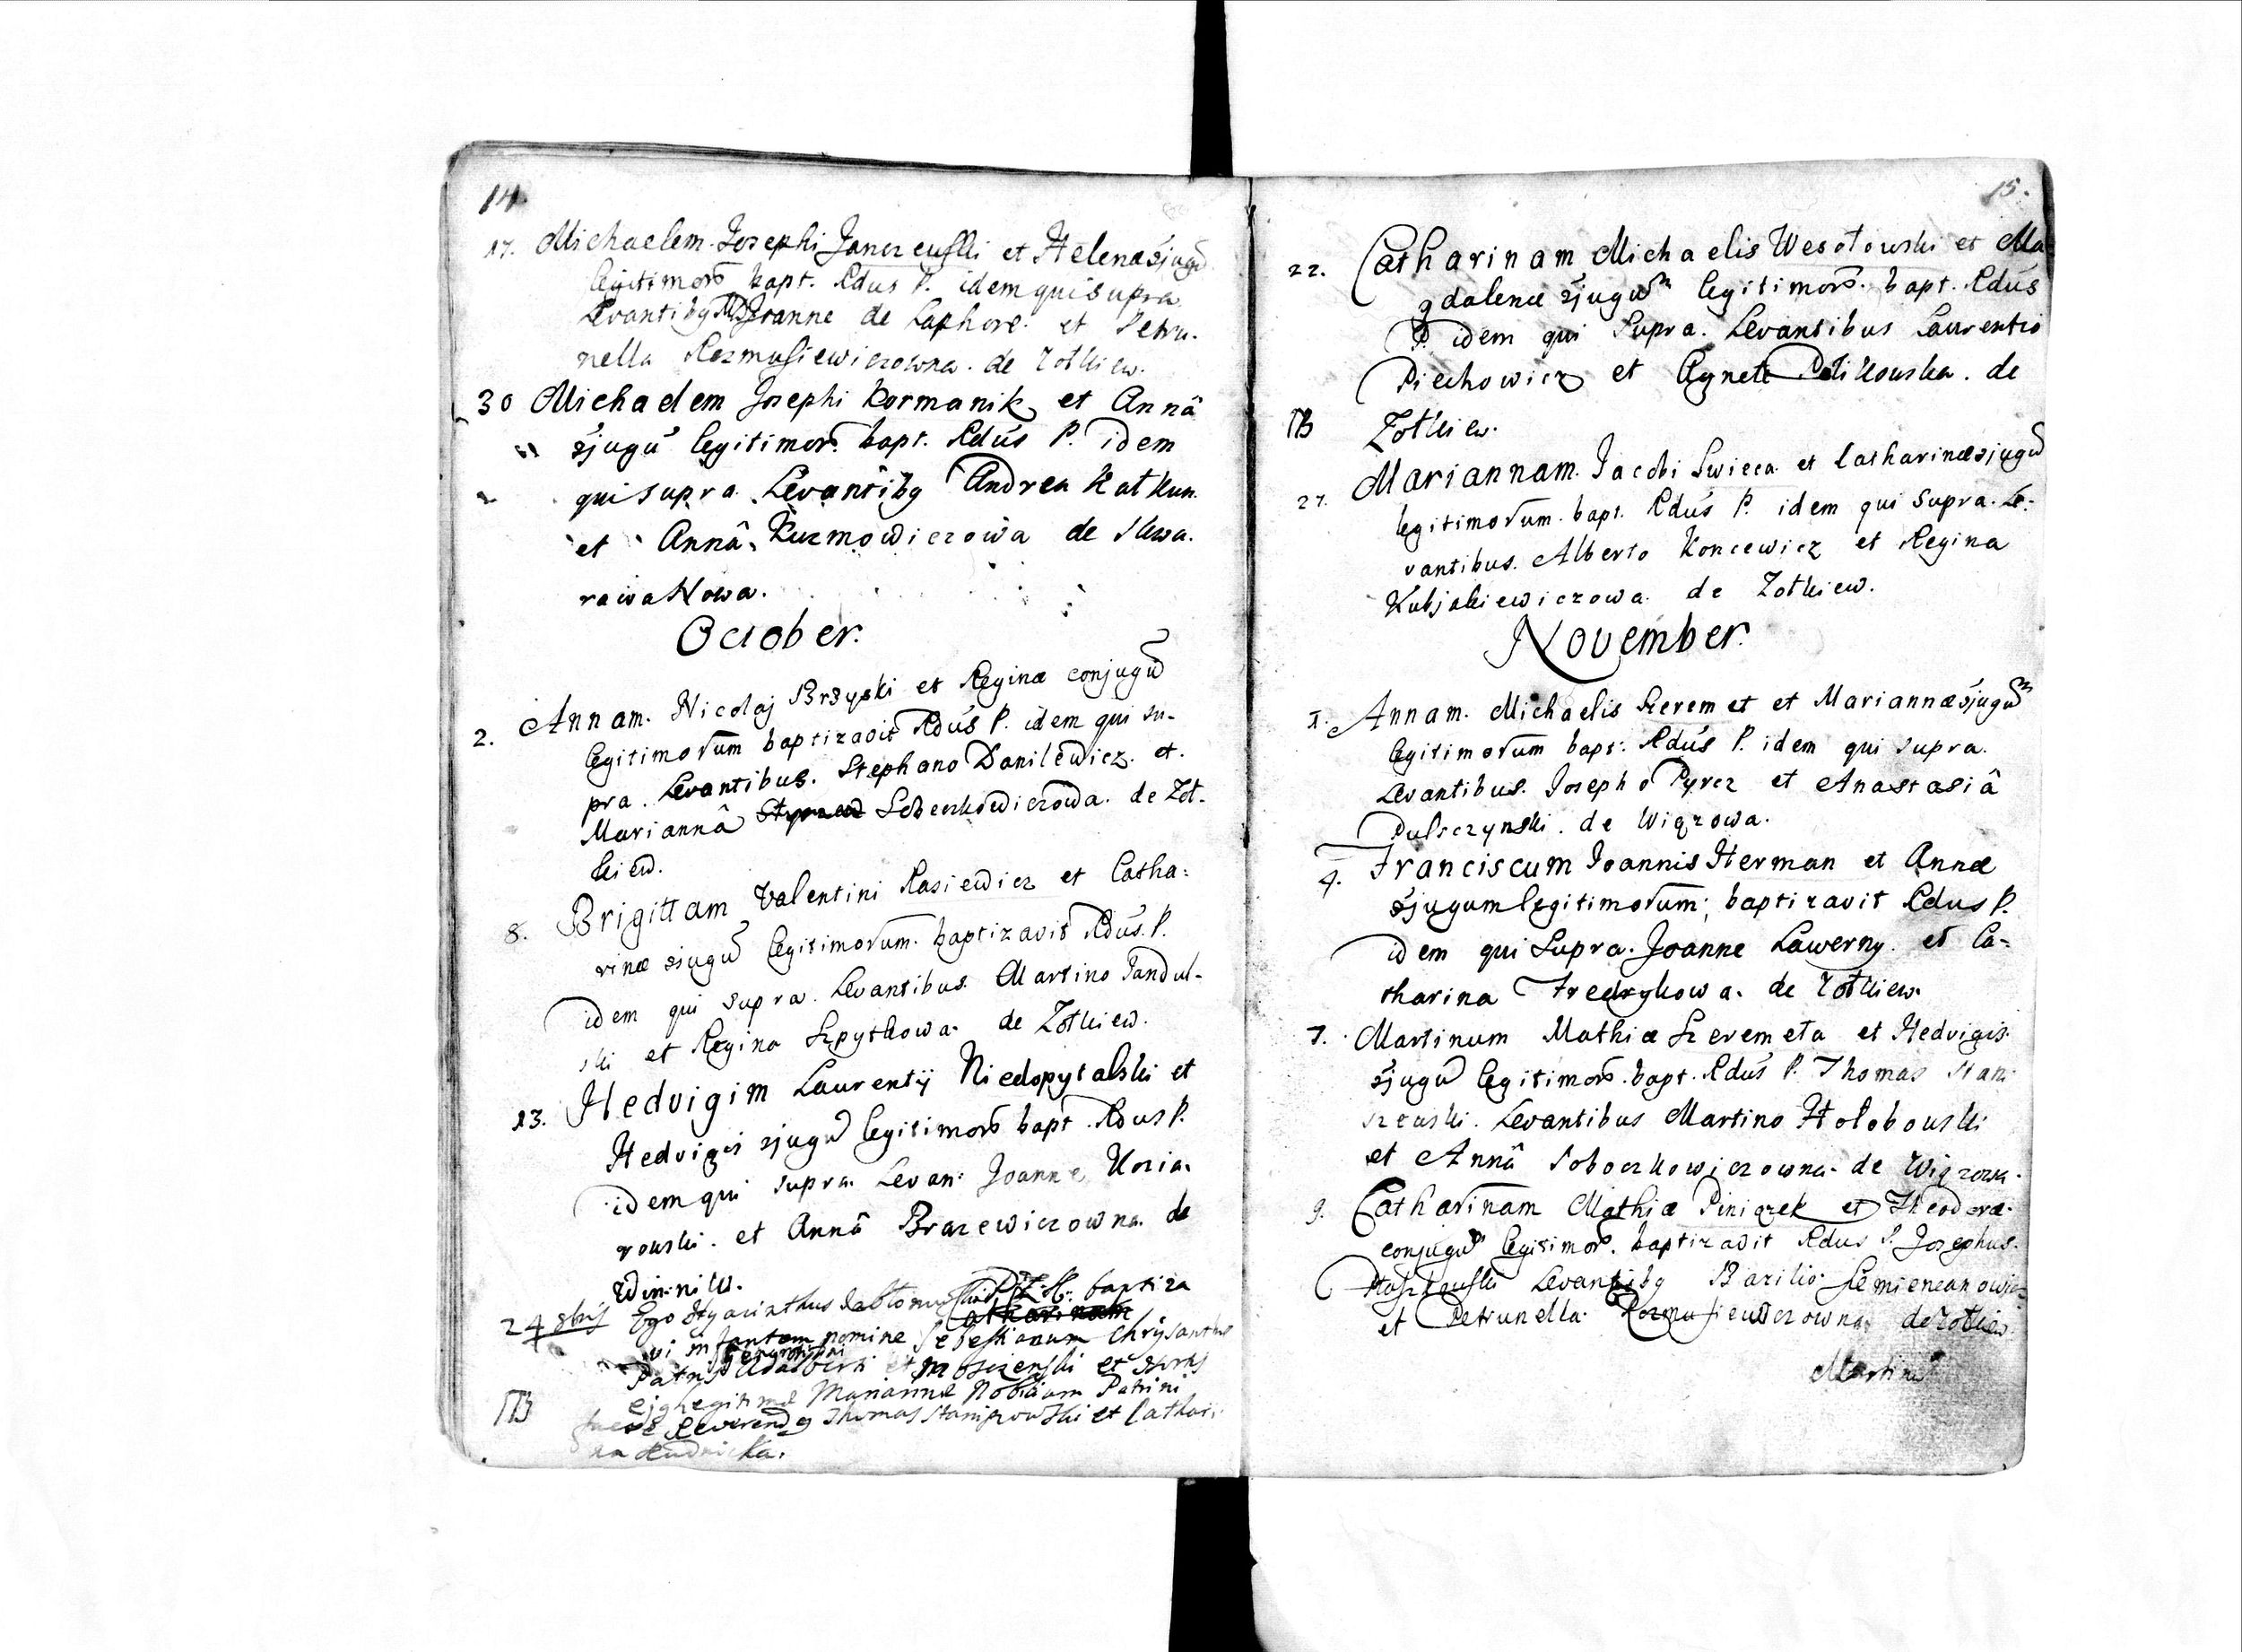 14.
17. Michaelem Josephi Janczewski et Helenæ sjugū
legitimor̄ bapt. Rdus P. idem qui supra
Levantibg Joanne de et Petru-
nella Rozmusiewiczowna. de Zołkiew.
30 Michaelem Josephi Kormanik et Annâ
sjugū legitimor̄. bapt. Rdus P. idem
qui supra. Levantibg Andrea Katkun.
et Annâ Kuzmowiczowa de Skwa.
rawa Nowa.
October.
2. Annam. Nicolaj Brzyski et Reginæ conjugū
legitimorum baptizavit Rdus P. idem qui su-
pra. Levantibus. Stephano Danilewicz. et.
Mariannâ Sobeczkowiczowa. de Zoł-
kiew.
8. Brigittam Valentini Rasiewicz et Catha:
rinæ sjugū legitimorum. baptizavit Rdus. P.
idem qui supra. Levantibus. Martino Jandul-
ski et Regina Szpytkowa. de Zołkiew.
13. Hedvigim Laurentij Niedopytalski et
Hedvigis sjugū legitimor̄ bapt. Rdus P.
idem qui supra. Levan: Joanne Kozia.
rowski. et Annâ Brazewiczowna. de
Winniki.
24 8bris Ego Hyacinthus Jabłonowski baptiza
vi infantem nomine Sebestianum Chrysantum
Patris Adalberti et Moszczenski et
ejg legitimæ Mariannæ Nobilium Patrini
NB fuere Reverendg Thomas Staniszowski et Cathari-
na Rudnicka.
15.
22. Catharinam Michaelis Wesołowski et Ma-
gdalenæ sjugum legitimor̄. bapt. Rdus
P. idem qui supra. Levantibus Laurentio
Piechowicz et Agnete Polikowska. de
NB Zołkiew.
27. Mariannam. Jacobi Swieca et Catharinæ sjugū
legitimorum. bapt. Rdus P. idem qui supra. Le-
vantibus. Alberto Koncewicz et Regina
Kubjakiewiczowa. de Zołkiew.
November.
1. Annam. Michaelis Szeremet et Mariannæ sjugum
legitimorum bapt. Rdus P. idem qui supra.
Levantibus. Josepho Pyrcz et Anastasiâ
Pulsczynski. de Wiązowa.
4. Franciscum Joannis Herman et Annæ
sjugum legitimorum; baptizavit Rdus P.
idem qui supra. Joanne Lawerny. et Ca-
tharina Fredrykowa. de Zołkiew.
7. Martinum Mathiæ Szeremeta et Hedvigis
sjugū legitimor̄. bapt. Rdus P. Thomas Stani
szewski. Levantibus Martino Hołobowski
et Annâ Soboczkowiczowna. de Wiązowa.
9. Catharinam Mathiæ Piniązek et Theodoræ.
conjugum legitimor̄. baptizavit Rdus P. Josephus.
Levantibg Bazilio Semiencanowicz
et Petrunella. Rozmusiewiczowna. de Zołkiew.
Martinū